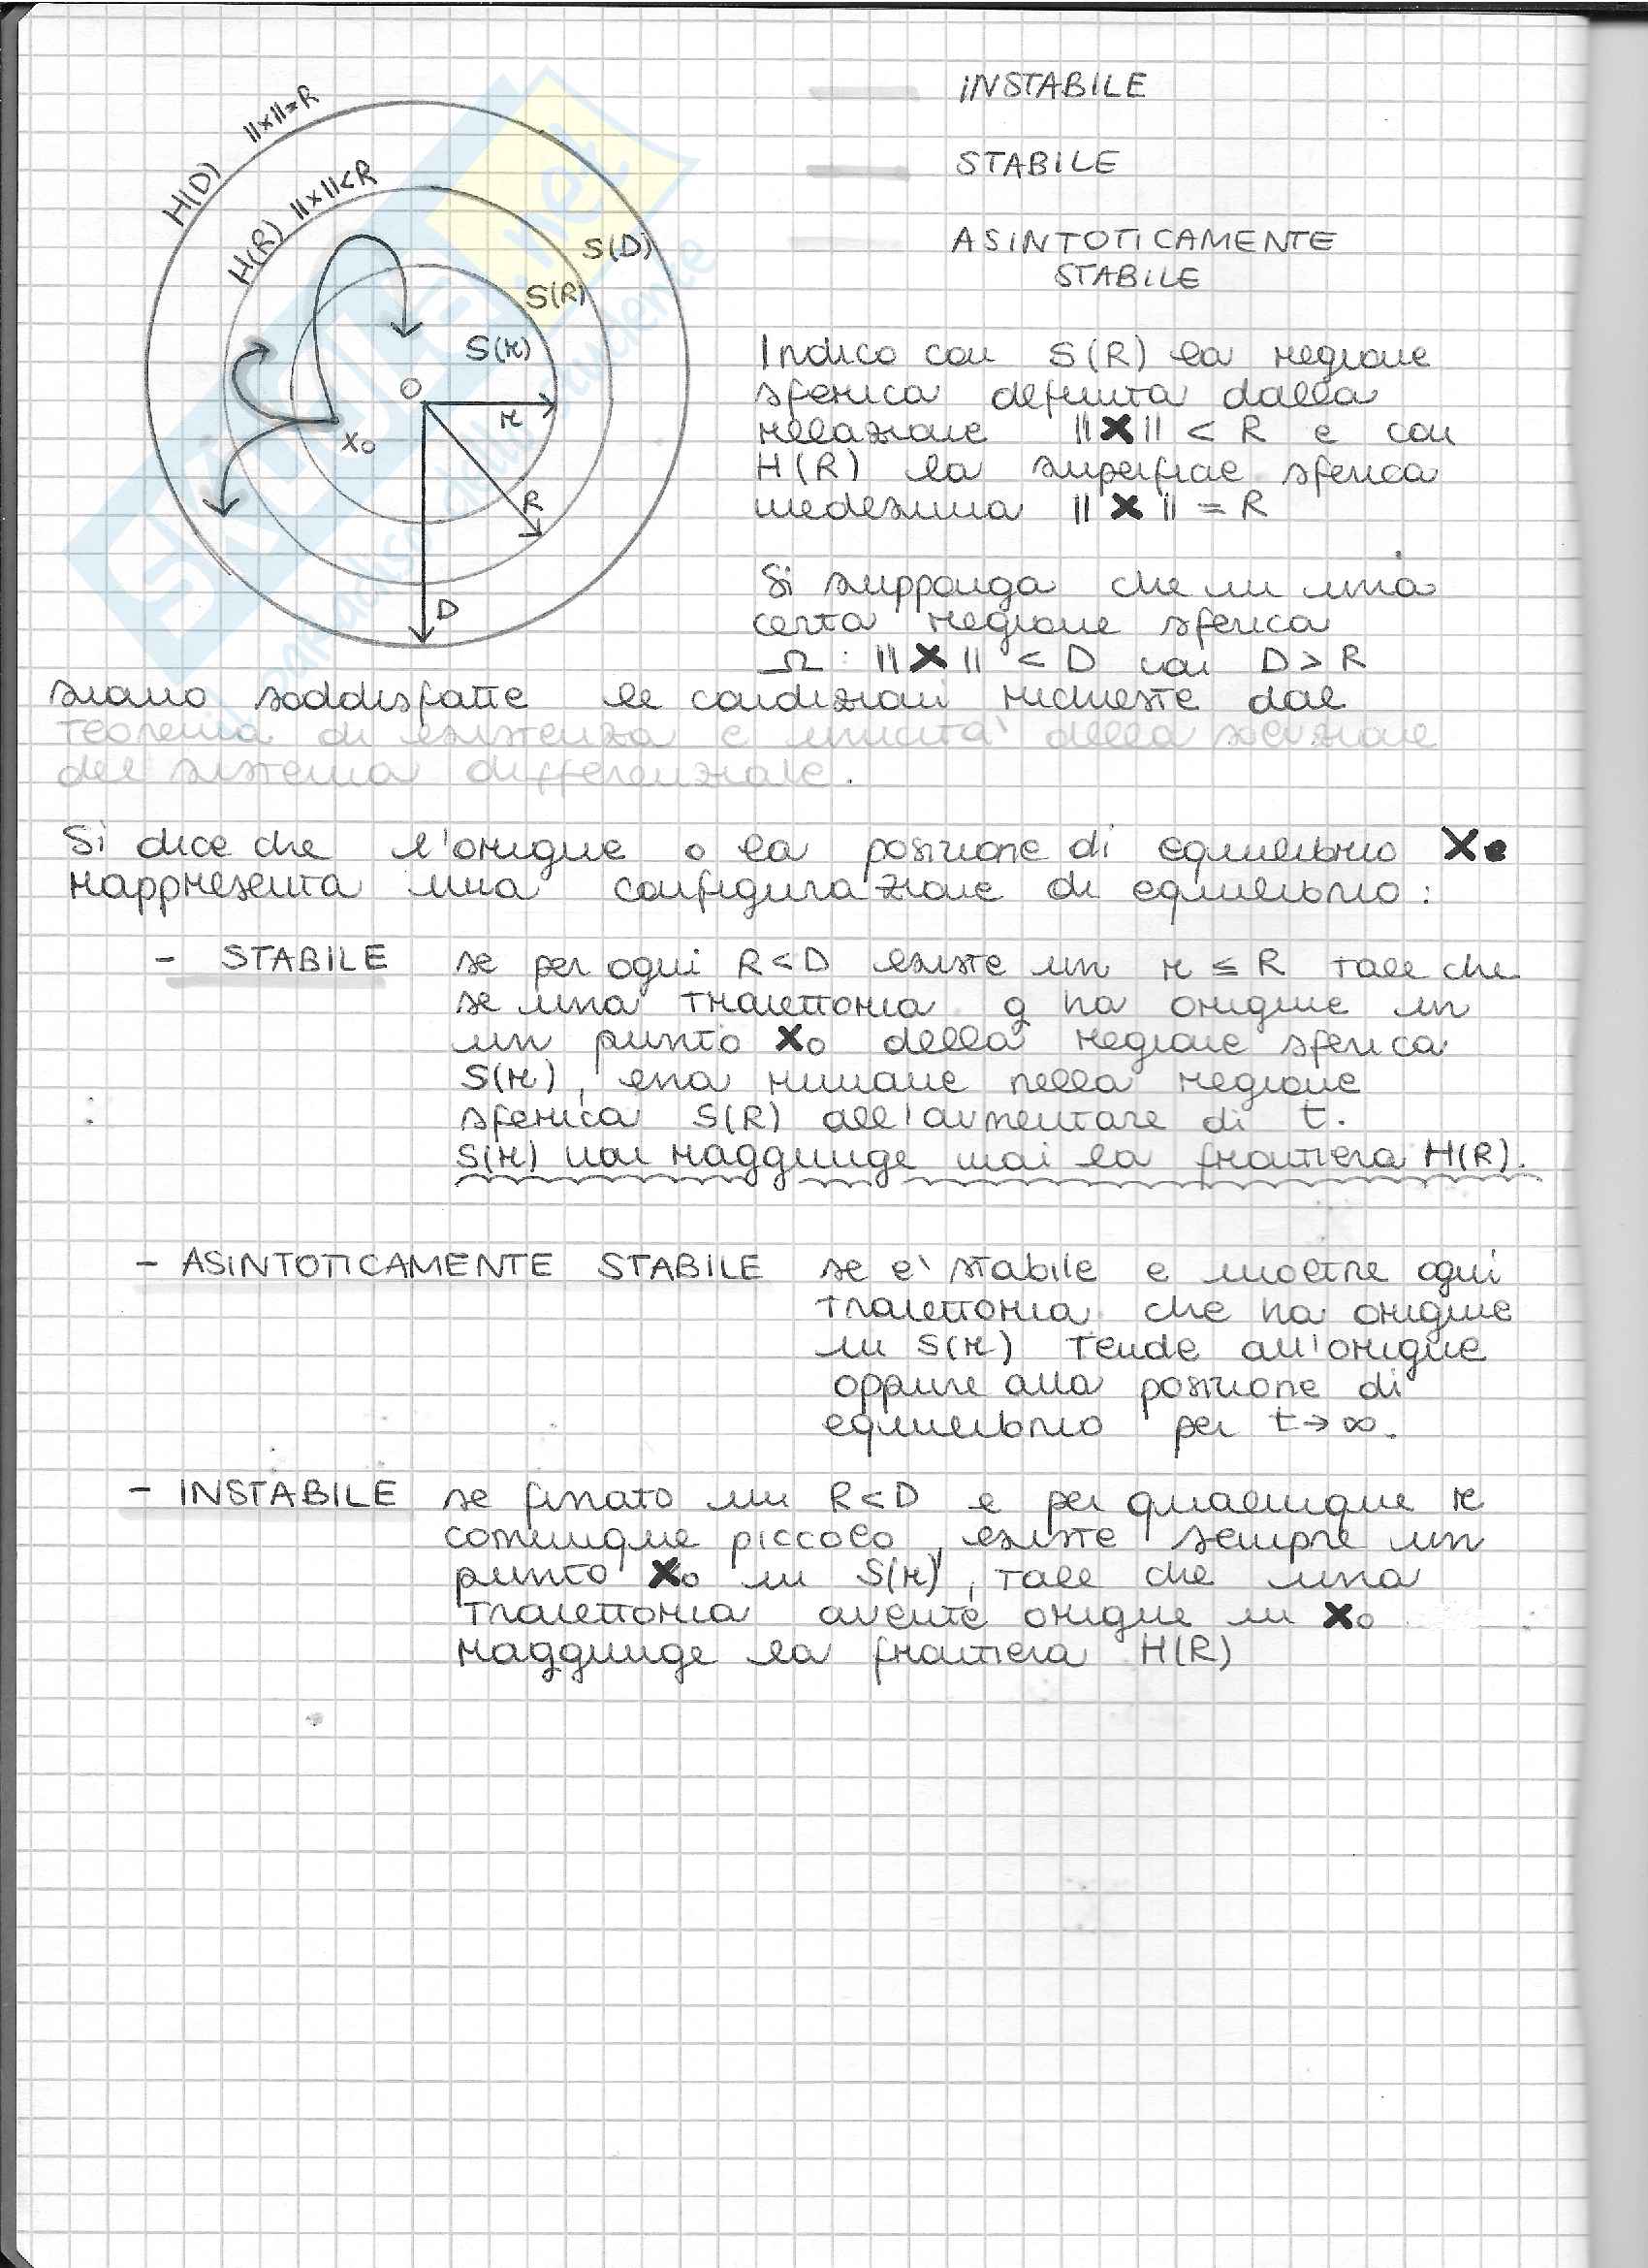 INSTABILE
STABILE
ASINTOTICAMENTE
STABILE
H(D) ||x||=R
H(R) ||x||<R
S(D)
S(R)
S(r)
O
r
x₀
R
D
Indico con S(R) la regione
sferica definita dalla
relazione ||x|| < R e con
H(R) la superficie sferica
medesima ||x|| = R
Si supponga che in una
certa regione sferica
Ω : ||x|| < D con D > R
siano soddisfatte le condizioni richieste dal
teorema di esistenza e unicita' della soluzione
del sistema differenziale.
Si dice che l'origine o la posizione di equilibrio xe
rappresenta una configurazione di equilibrio:
- STABILE se per ogni R<D esiste un r ≤ R tale che
se una traiettoria g ha origine in
un punto x₀ della regione sferica
S(r), essa rimane nella regione
sferica S(R) all'aumentare di t.
S(r) non raggiunge mai la frontiera H(R).
- ASINTOTICAMENTE STABILE se e' stabile e inoltre ogni
traiettoria che ha origine
in S(r) tende all'origine
oppure alla posizione di
equilibrio per t→∞.
- INSTABILE se fissato un R<D e per qualunque r
comunque piccolo, esiste sempre un
punto x₀ in S(r), tale che una
traiettoria avente origine in x₀
raggiunge la frontiera H(R)